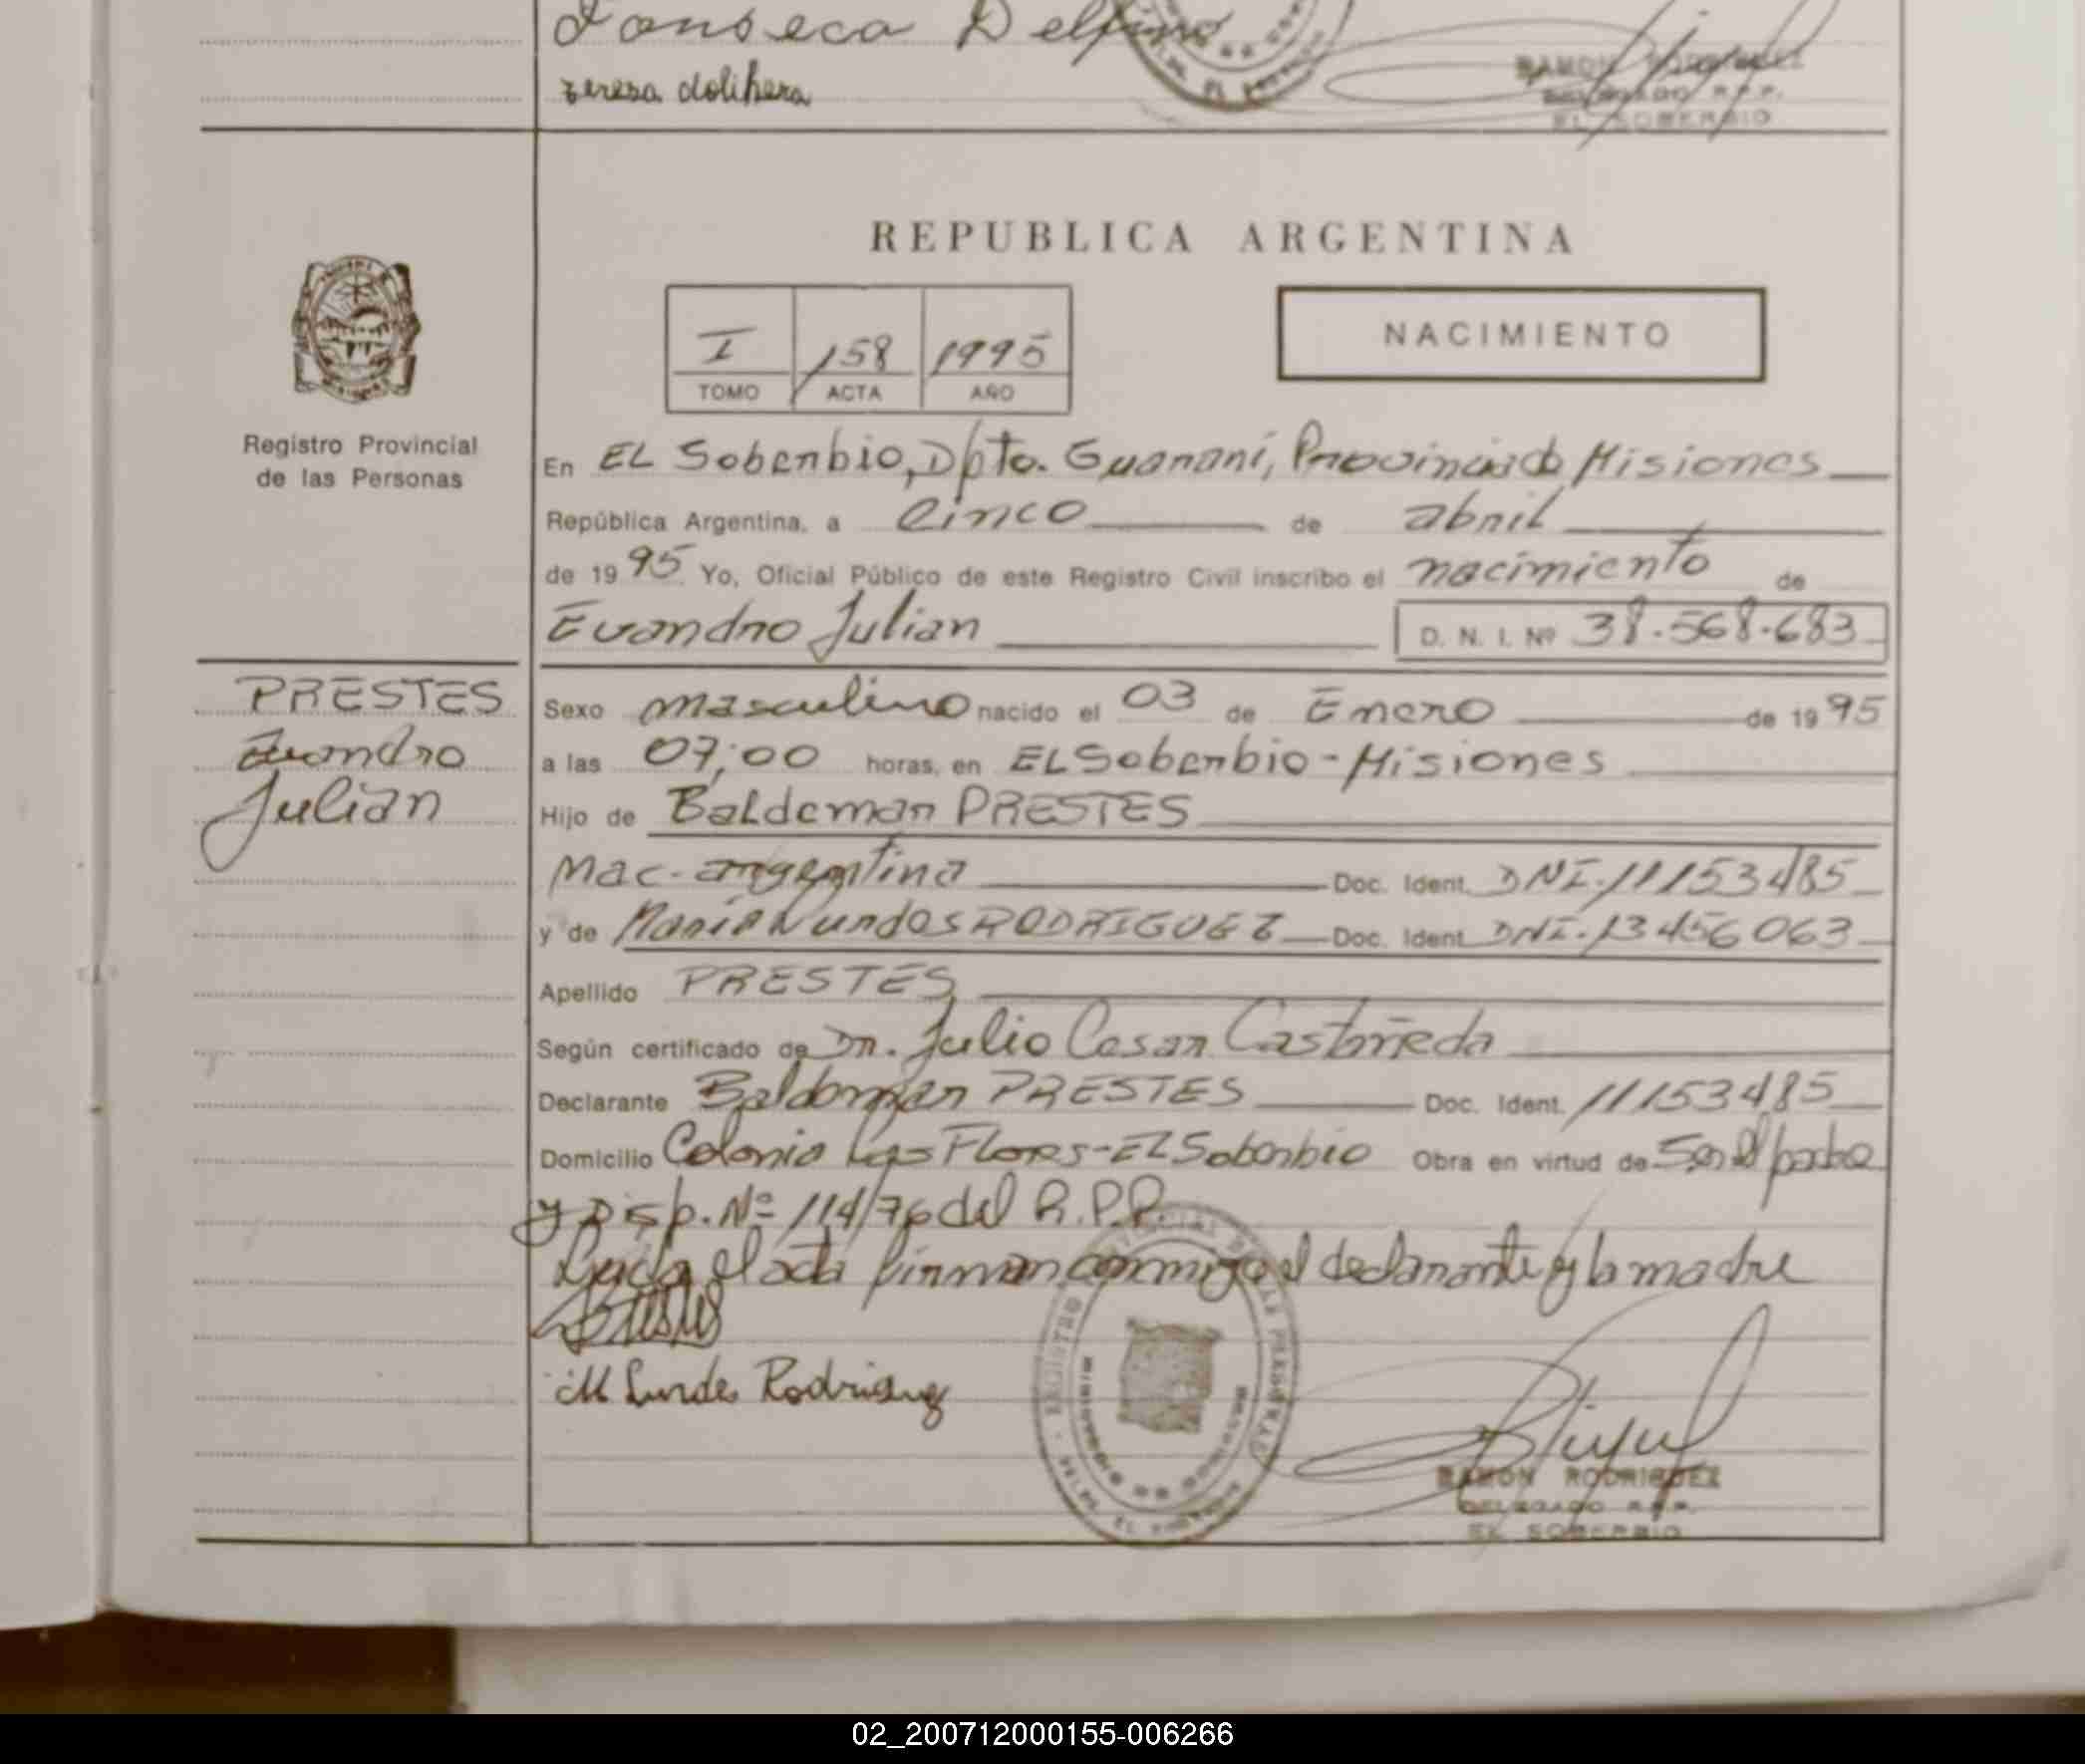 Fonseca Delfino
teresa dolihera
RAMON RODRIGUEZ
DELEGADO R.P.P.
EL SOBERBIO
REPUBLICA ARGENTINA
I 158 1995
TOMO ACTA AÑO
NACIMIENTO
Registro Provincial
de las Personas
En EL Soberbio, Dpto. Guaraní, Provincia de Misiones
República Argentina, a Cinco de abril
de 1995 Yo, Oficial Público de este Registro Civil inscribo el nacimiento de
Evandro Julian D. N. I. Nº 38.568.683
PRESTES
Evandro
Julian
Sexo masculino nacido el 03 de Enero de 1995
a las 07;00 horas, en EL Soberbio - Misiones
Hijo de Baldemar PRESTES
Nac. argentina Doc. Ident. DNI. 11153485
y de Maria Lurdes RODRIGUEZ Doc. Ident. DNI. 13456063
Apellido PRESTES
Según certificado de Dr. Julio Cesar Castañeda
Declarante Baldemar PRESTES Doc. Ident. 11153485
Domicilio Colonia Las Flores - EL Soberbio Obra en virtud de Ser el padre
y Disp. Nº 114/76 del R.P.P.
Leída el acta firman conmigo el declarante y la madre
M Lurdes Rodriguez
REGISTRO PROVINCIAL DE LAS PERSONAS
RAMON RODRIGUEZ
DELEGADO R.P.P.
EL SOBERBIO
02_200712000155-006266